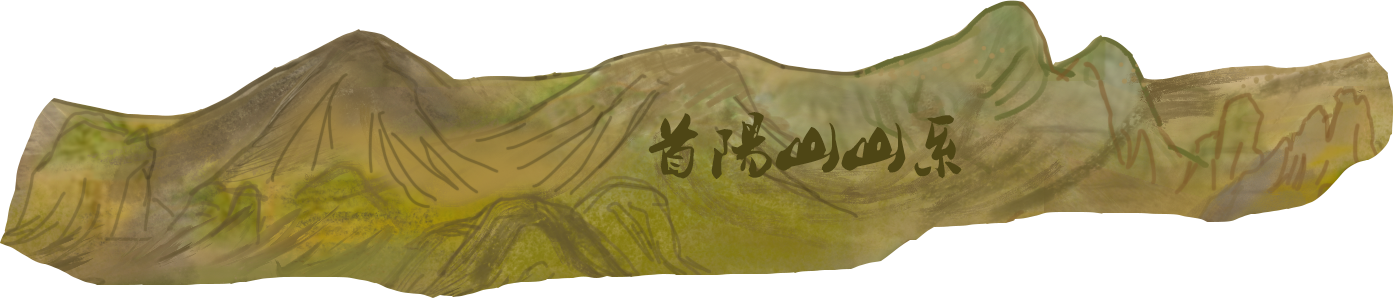 首陽山山系